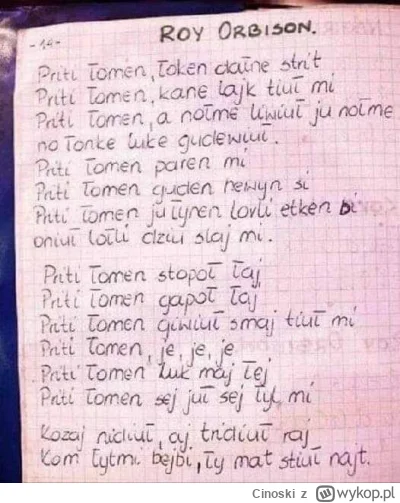 -14-
ROY ORBISON.
Priti Łomen, Łoken daŁne strit
Priti Łomen, kane Łajk tiuŁ mi
Priti Łomen, a noŁme liwiuŁ ju noŁme
no Łonke luke gudewiuŁ.
Priti Łomen paren mi
Priti Łomen guden hewyn si
Priti Łomen ju Łynen lovli etken bi
oniuŁ loŁli dziu slaj mi.
Priti Łomen stopoŁ Łaj
Priti Łomen gapoŁ Łaj
Priti Łomen giwiuŁ smaj tiuŁ mi
Priti Łomen, je, je, je
Priti Łomen luk maj Łej
Priti Łomen sej juŁ sej Łyt mi
Kozaj nidiuŁ, aj tridiuŁ raj
Kom Łytmi bejbi, Ły mat stiuŁ najt.
Cinoski z wykop.pl